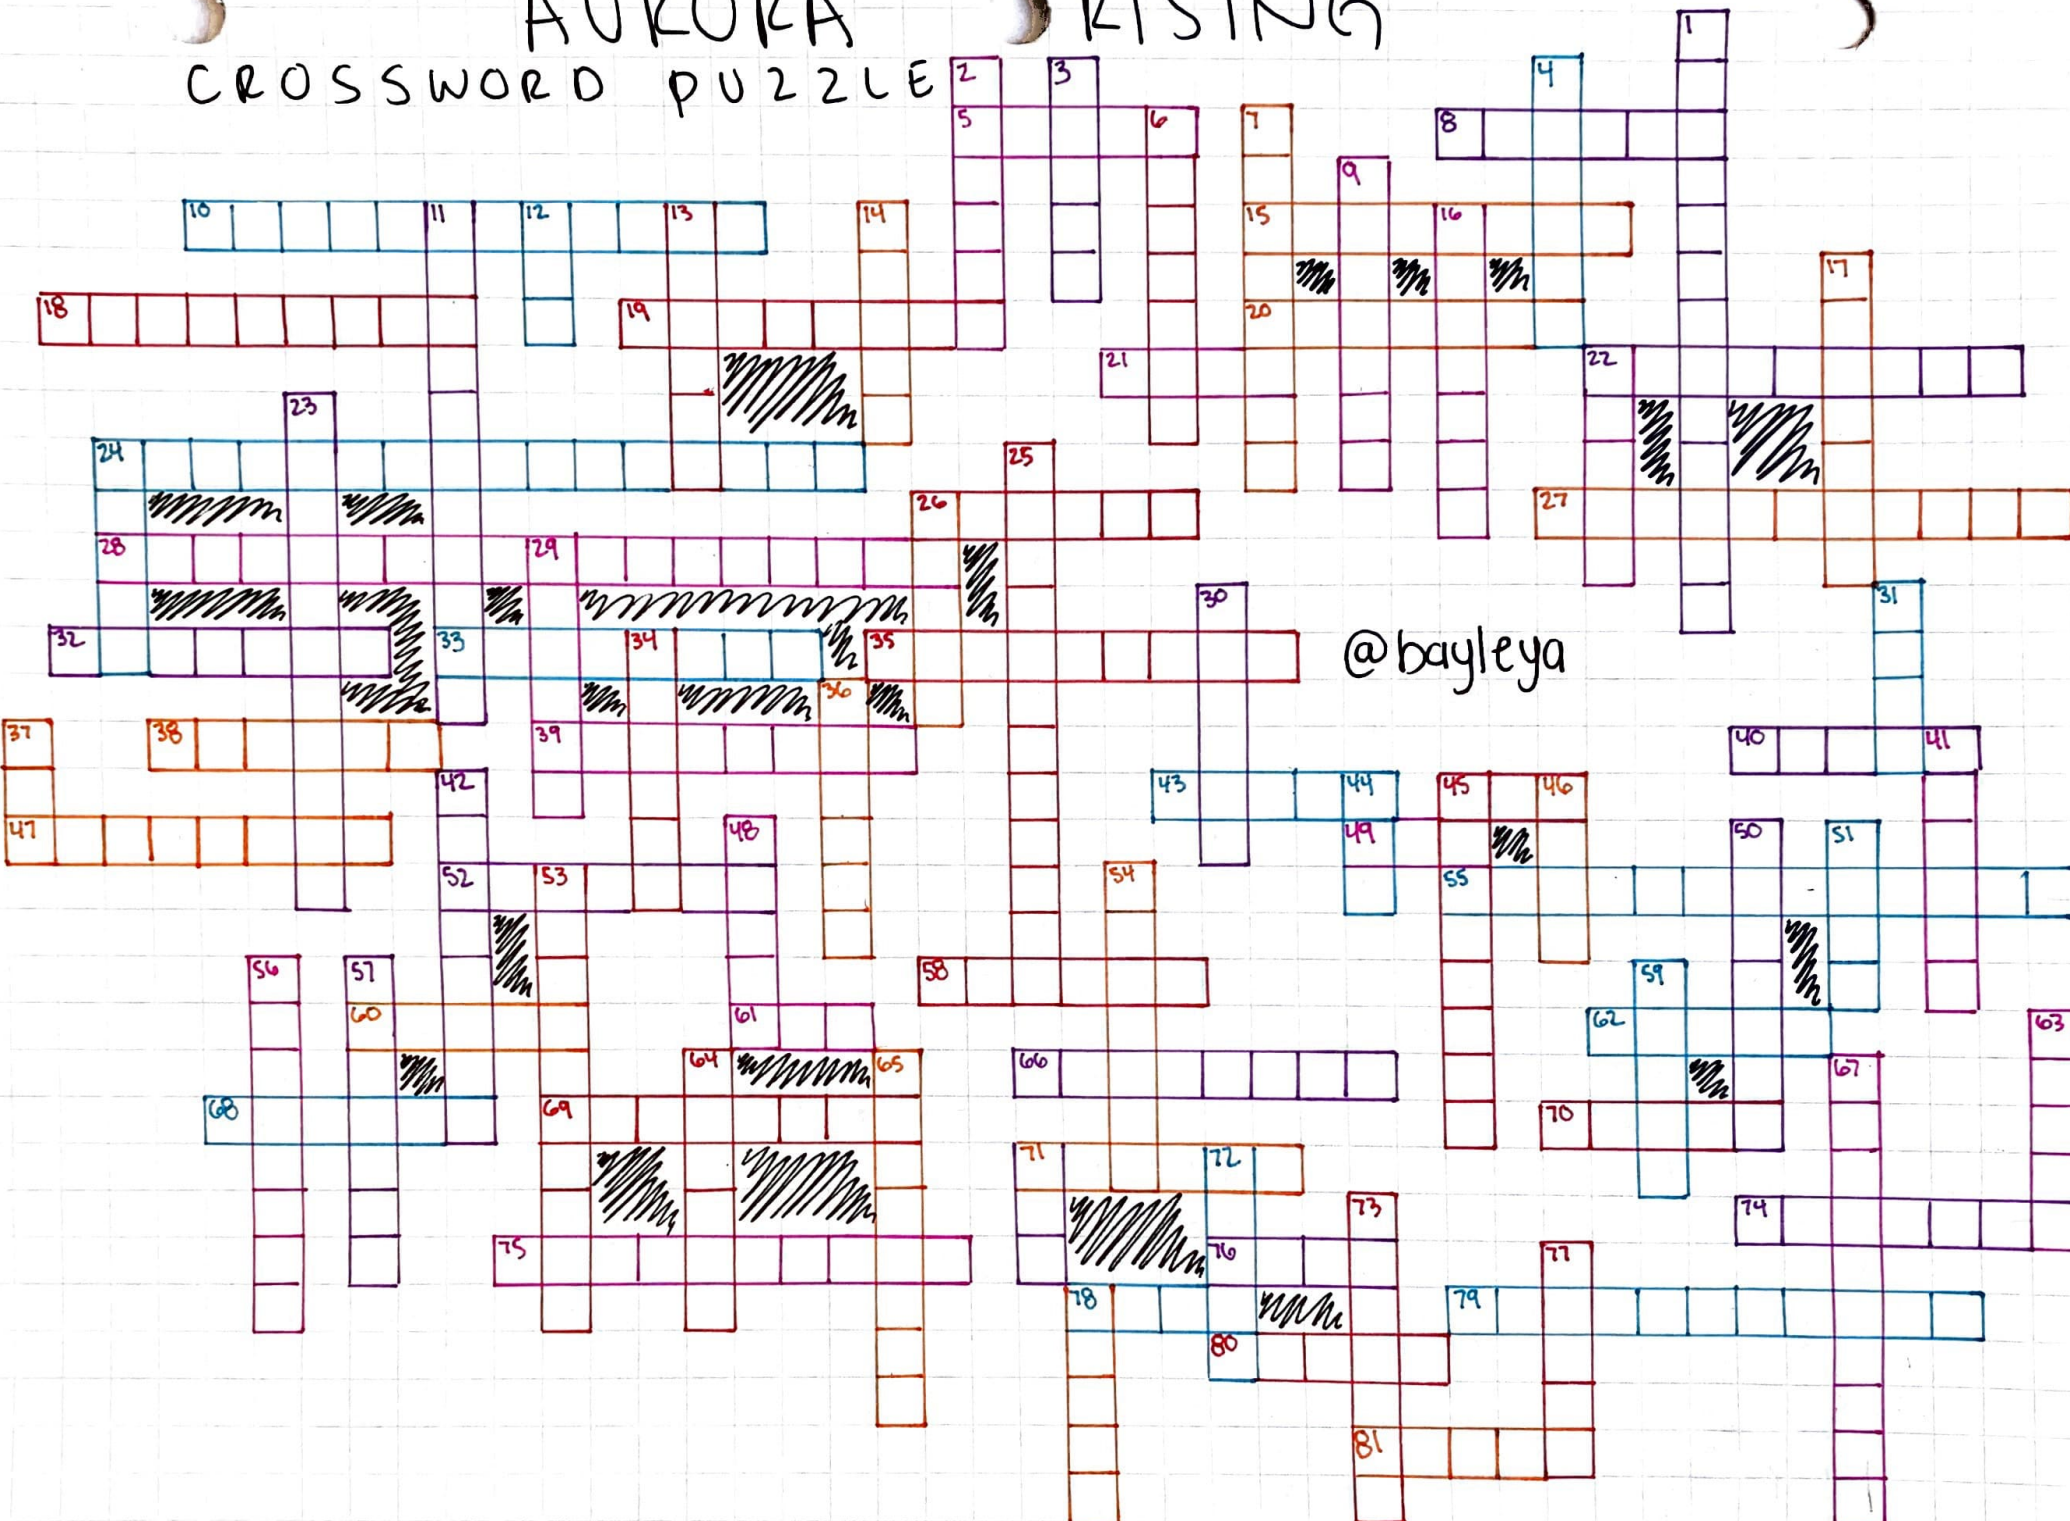 AURORA RISING
CROSSWORD PUZZLE
1
2 3 4
5 6 7 8
9
10 11 12 13 14 15 16
17
18 19 20
21 22
23
24 25
26 27
28 29
30 31
32 33 34 35
@bayleya
36
37 38 39 40 41
42 43 44 45 46
47 48 49 50 51
52 53 54 55
56 57 58 59
60 61 62 63
64 65 66 67
68 69 70
71 72
73 74
75 76 77
78 79
80
81